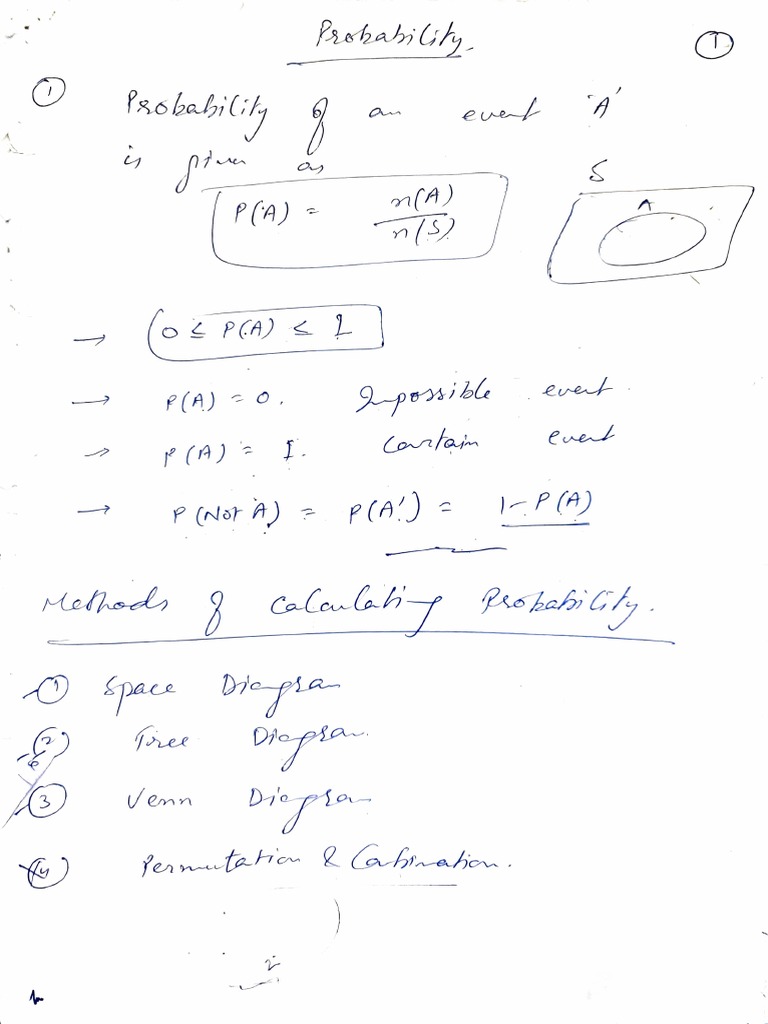 Probability.
①
① Probability of an event 'A'
is given as
P(A) = n(A)/n(S)
S
A
→ 0 ≤ P(A) ≤ 1
→ P(A) = 0. Impossible event.
→ P(A) = 1. Certain event
→ P(Not A) = P(A') = 1 - P(A)
Methods of Calculating Probability.
① Space Diagram
② Tree Diagram.
③ Venn Diagram
④ Permutation & Combination.
2